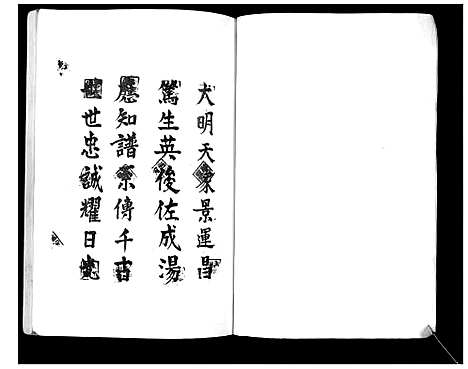 大明天家景運昌
篤生英後佐成湯
應知譜系傳千古
世世忠誠耀日光